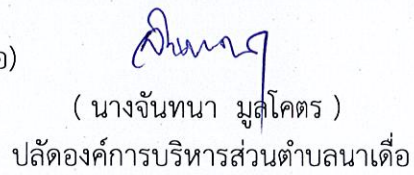 อ)
( นางจันทนา มูลโคตร )
ปลัดองค์การบริหารส่วนตำบลนาเดื่อ